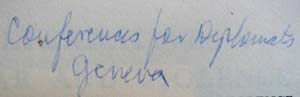 Conferences for Diplomats
Geneva